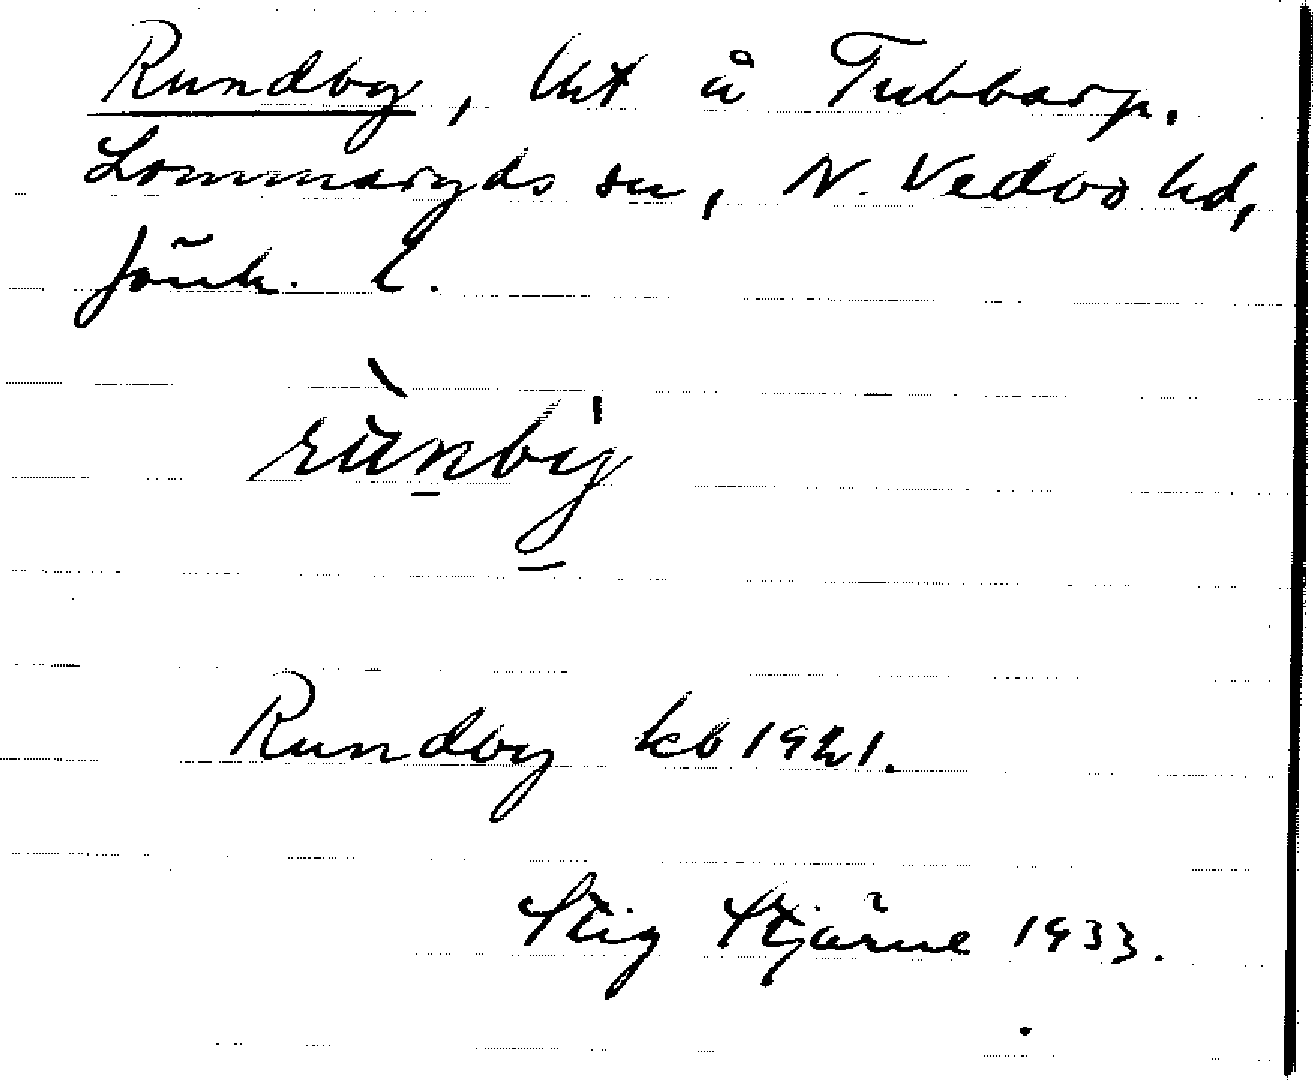 Rundby, lht å Tubbarp.
Lommaryds sn, N. Vedbo hd,
Jönk. l.
rùnbẏ
Rundby kb 1921.
Stig Stjärne 1933.